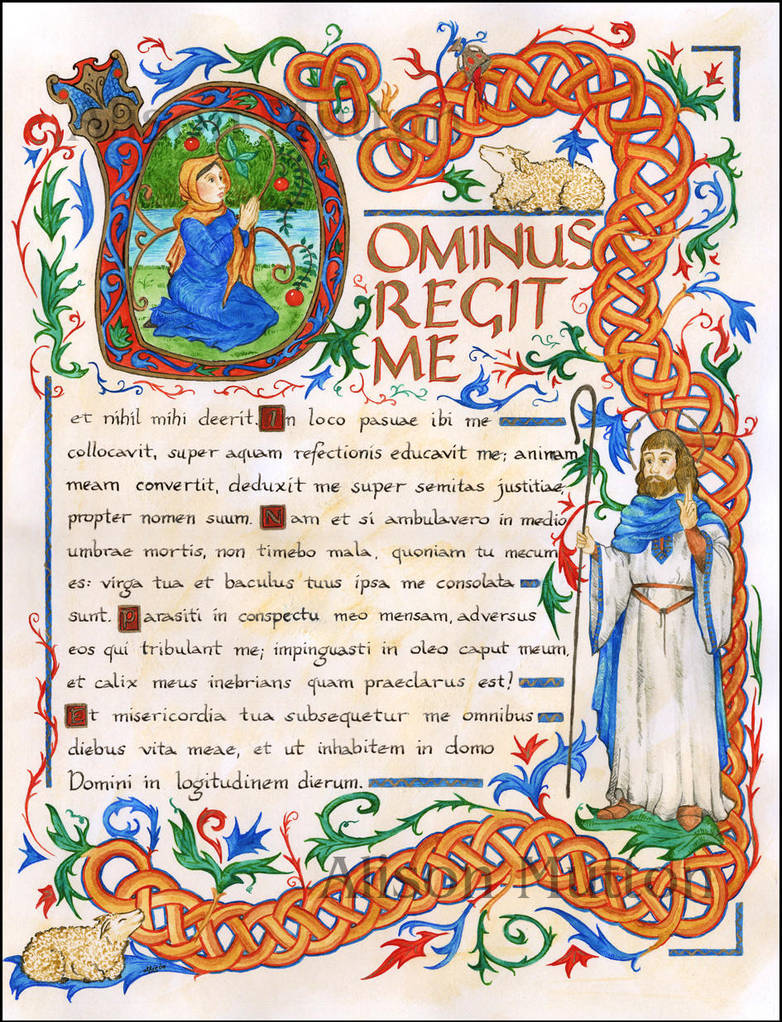 DOMINUS
REGIT
ME
et nihil mihi deerit. In loco pasuae ibi me
collocavit, super aquam refectionis educavit me; animam
meam convertit, deduxit me super semitas justitiae
propter nomen suum. Nam et si ambulavero in medio
umbrae mortis, non timebo mala, quoniam tu mecum
es: virga tua et baculus tuus ipsa me consolata
sunt. Parasiti in conspectu meo mensam, adversus
eos qui tribulant me; impinguasti in oleo caput meum,
et calix meus inebrians quam praeclarus est!
Et misericordia tua subsequetur me omnibus
diebus vita meae, et ut inhabitem in domo
Domini in logitudinem dierum.
Alison Mutton